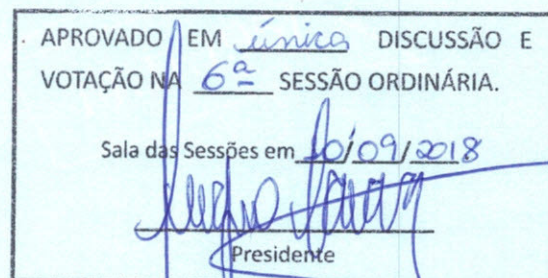 APROVADO EM única DISCUSSÃO E
VOTAÇÃO NA 6ª SESSÃO ORDINÁRIA.
Sala das Sessões em 10/09/2018
Presidente